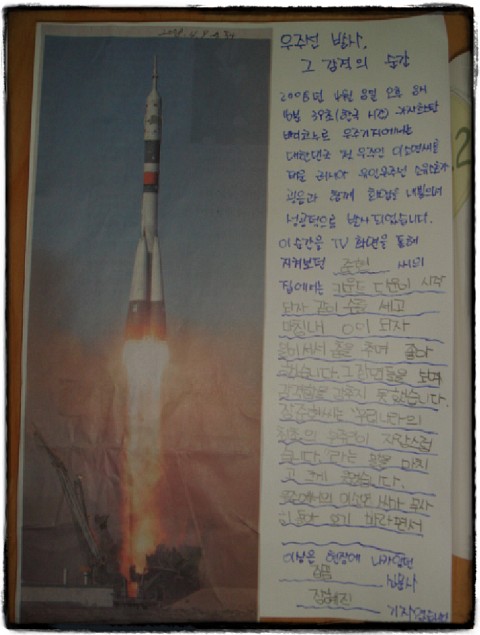 2008. 4. 9
우주선 발사,
그 감격의 순간
2008년 4월 8일 오후 8시
16분 39초(한국 시간) 카자흐스탄
바이코누르 우주기지에서는
대한민국 첫 우주인 이소연씨를
태운 러시아 유인우주선 소유스호가
굉음과 함께 화염을 내뿜으며
성공적으로 발사되었습니다.
이 순간을 TV 화면을 통해
지켜보던 씨의
집에서는 카운트 다운이 시작
되자 같이 숫를 세고
마침내 0이 되자
일어서서 춤을 추며 좋아
했습니다. 그 장면들을 보며
감격함을 감추지 못했습니다.
장준혁씨는 "우리나라의
최초의 우주인이 자랑스럽
습니다."라는 말을 마치
고 크게 웃었습니다.
우주에서의 이소연 씨가 무사
히 돌아 오기 바라면서
이상은 현장에 나가있던
신문사
장혜진 기자였습니다.